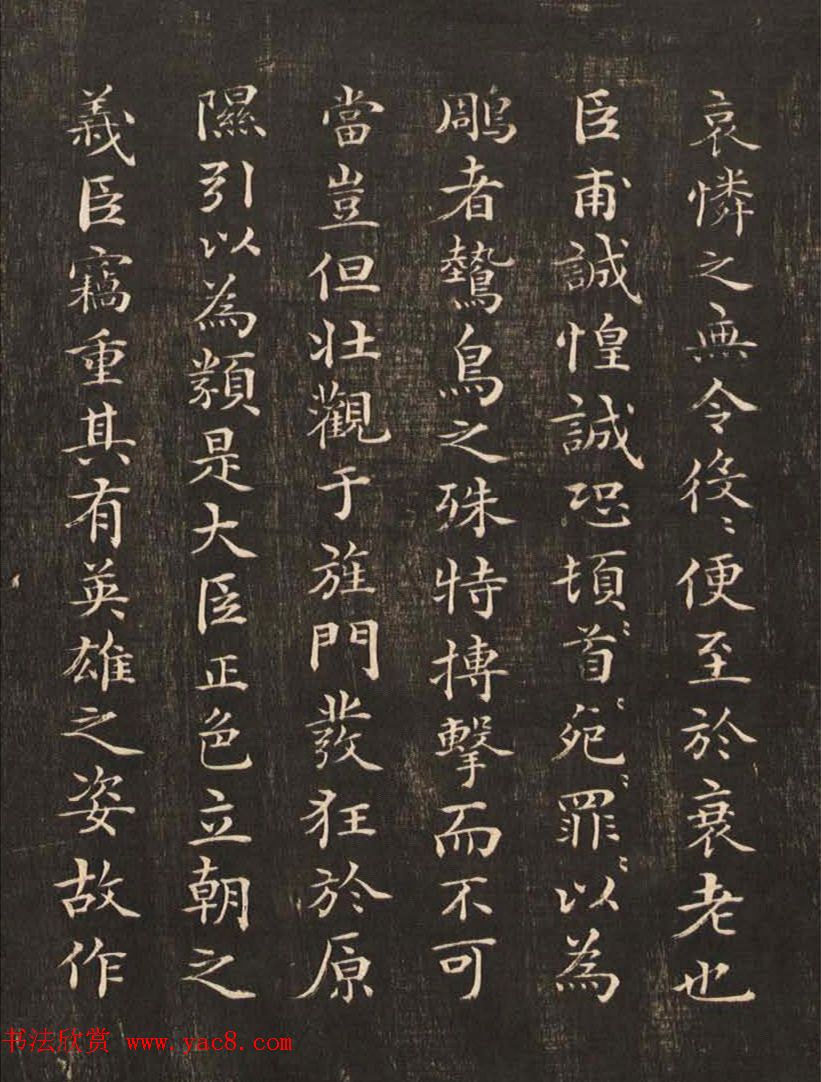 哀憐之無令役〻便至於衰老也
臣甫誠惶誠恐頓〻首〻死〻罪〻以為
鵰者鷙鳥之殊特搏擊而不可
當豈但壯觀于旌門發狂於原
隰引以為類是大臣正色立朝之
義臣竊重其有英雄之姿故作
书法欣赏 www.yac8.com